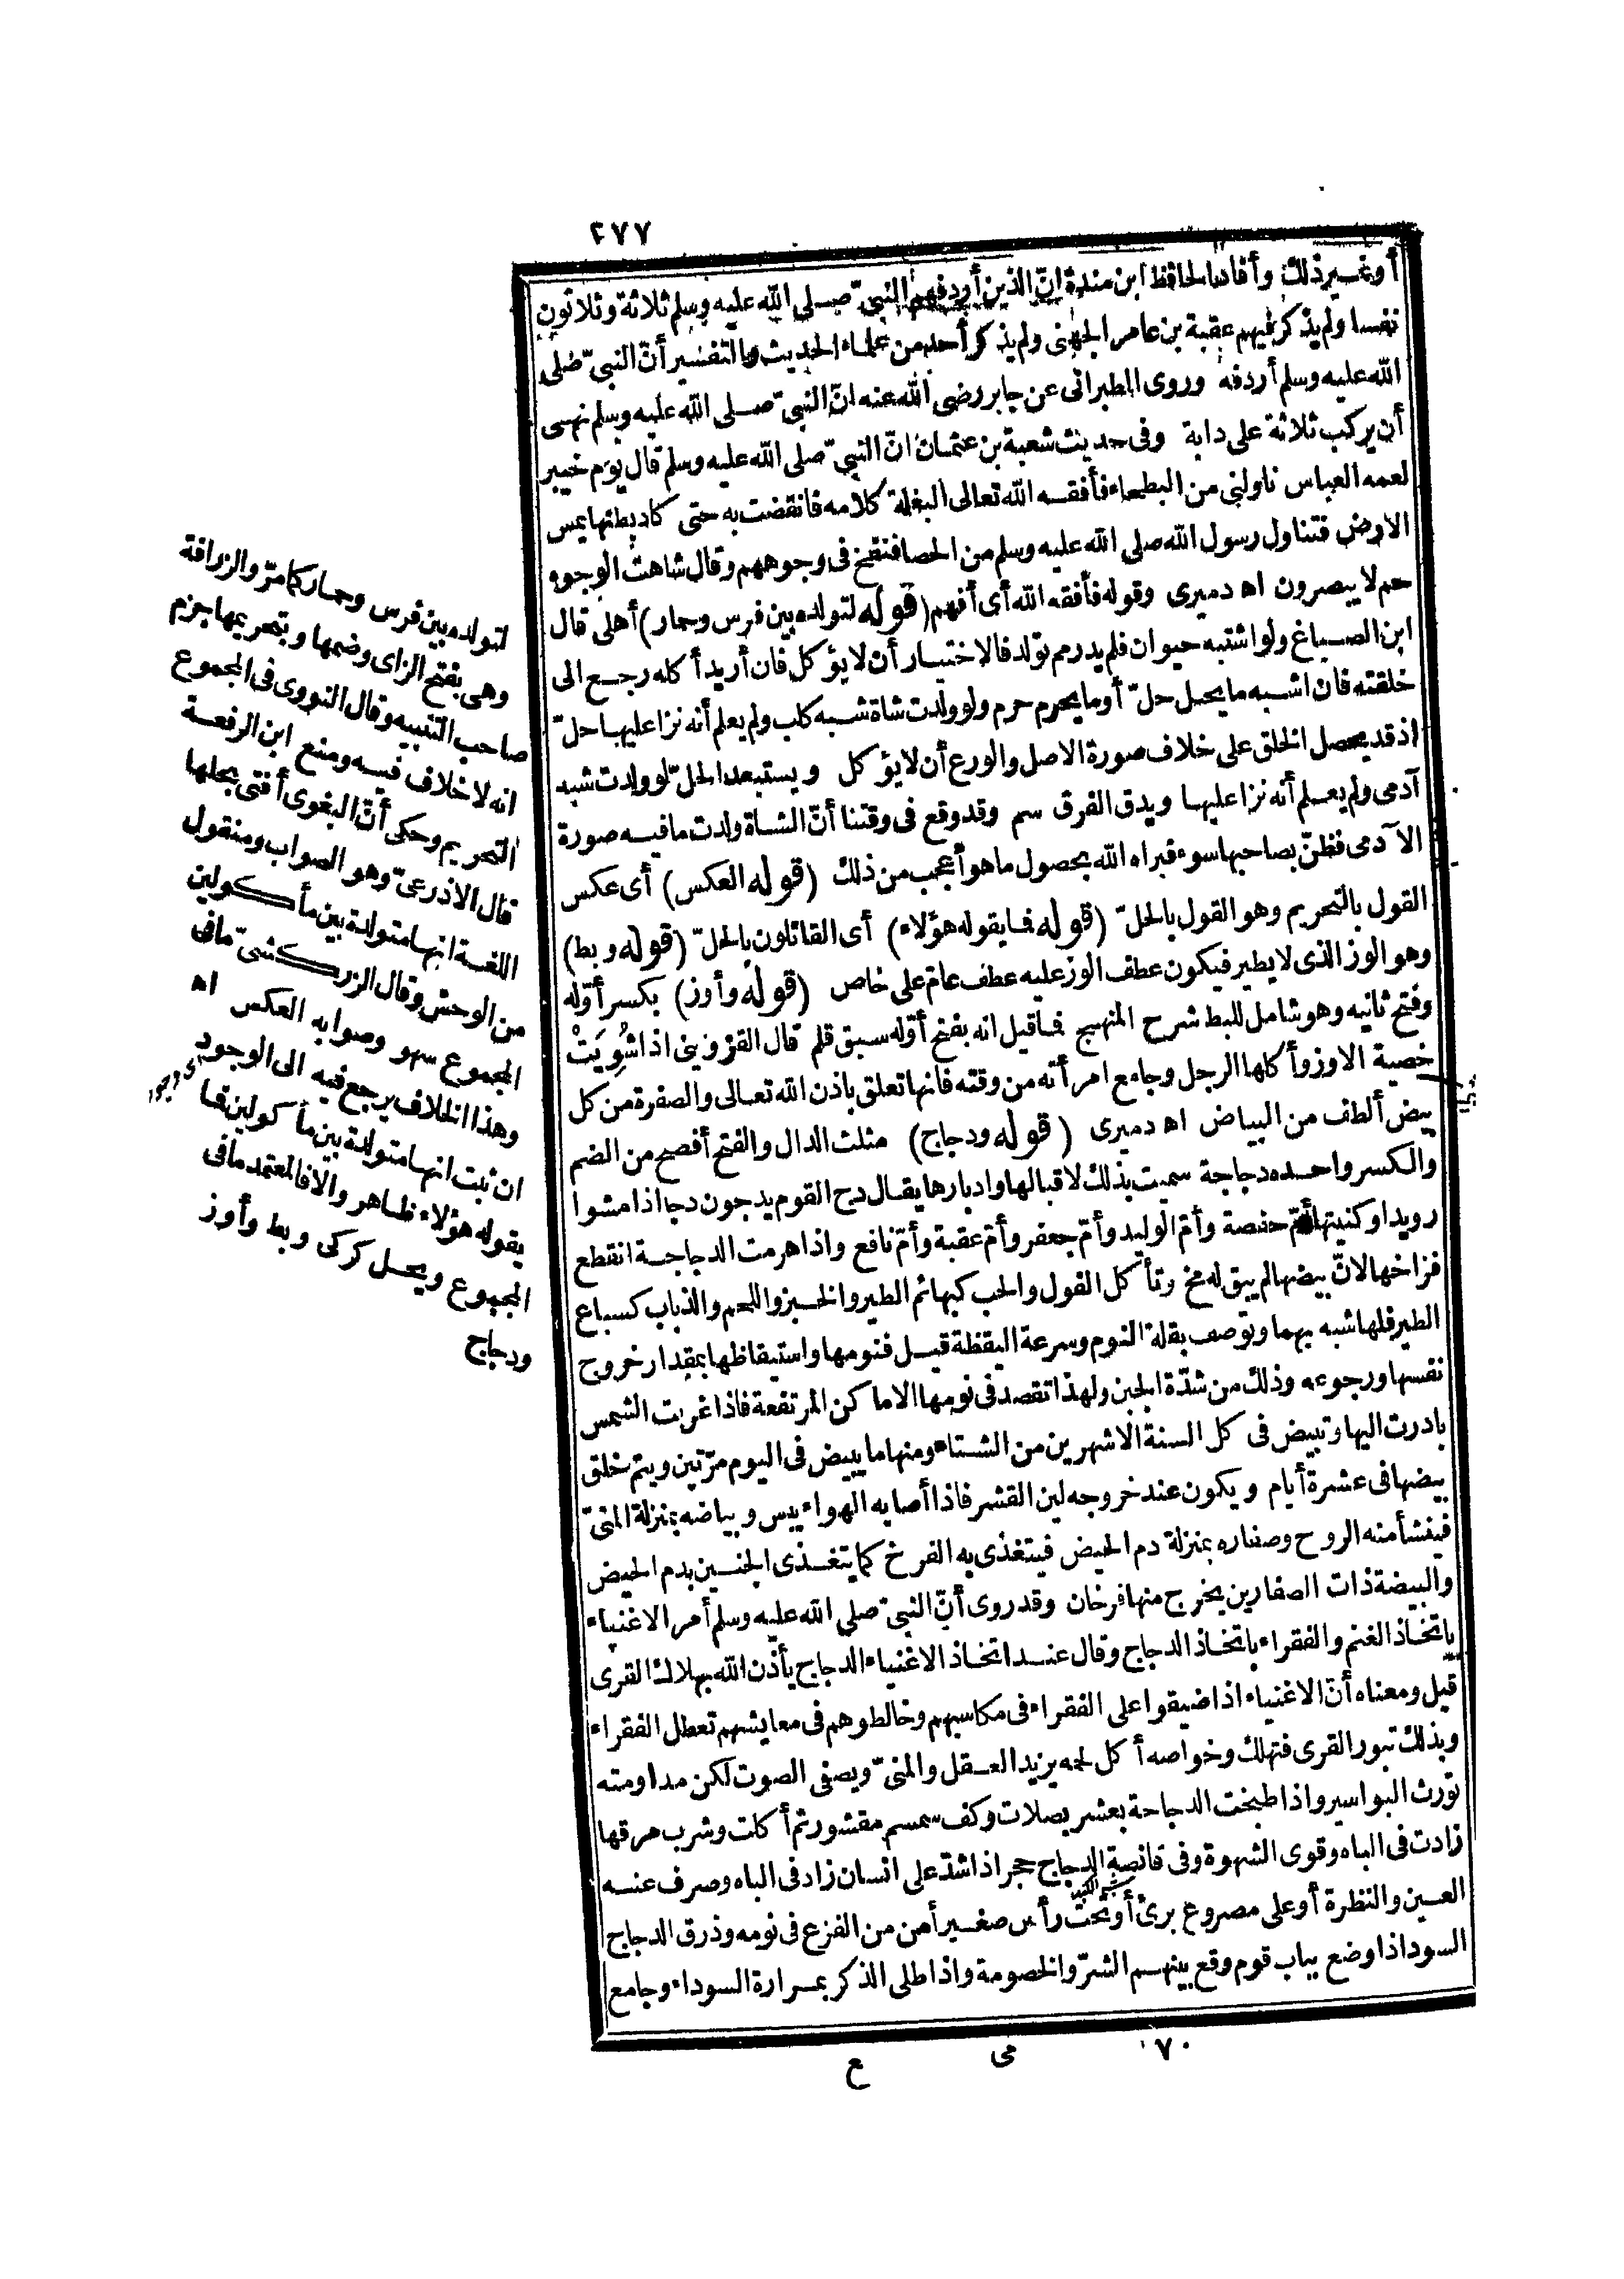 ٢٧٧
أو غير ذلك وأفاد الحافظ ابن مندة انّ الذين أردفهم النبيّ صلى الله عليه وسلم ثلاثة وثلاثون
نفسا ولم يذكر فيهم عقبة بن عامر الجهنى ولم يذكر أحد من علماء الحديث والتفسير أنّ النبيّ صلى
الله عليه وسلم أردفه وروى الطبرانى عن جابر رضى الله عنه انّ النبيّ صلى الله عليه وسلم نهى
أن يركب ثلاثة على دابة وفى حديث شعبة بن عثمان انّ النبيّ صلى الله عليه وسلم قال يوم خيبر
لعمه العباس ناولنى من البطحاء فأفقه الله تعالى البغلة كلامه فانقضت به حتى كاد بطنها يمس
الارض فتناول رسول الله صلى الله عليه وسلم من الحصا فنفخ فى وجوههم وقال شاهت الوجوه
حم لا يبصرون اه دميرى وقوله فأفقه الله أى أفهم (قوله لتولده بين فرس وحمار) أهلى قال
ابن الصباغ ولو اشتبه حيوان فلم يدر مم تولد فالاختيار أن لا يؤكل فان أريد أكله رجع الى
خلقته فان اشبه ما يحل حلّ أو ما يحرم حرم ولو ولدت شاة شبه كلب ولم يعلم أنه نزا عليها حلّ
اذ قد يحصل الخلق على خلاف صورة الاصل والورع أن لا يؤكل ويستبعد الحلّ لو ولدت شبه
آدمى ولم يعلم أنه نزا عليها ويدق الفرق سم وقد وقع فى وقتنا أنّ الشاة ولدت ما فيه صورة
الآدمى فظنّ بصاحبها سوء فبراه الله بحصول ما هو أعجب من ذلك (قوله العكس) أى عكس
القول بالتحريم وهو القول بالحلّ (قوله فما يقوله هؤلاء) أى القائلون بالحلّ (قوله وبط)
وهو الوز الذى لا يطير فيكون عطف الوز عليه عطف عامّ على خاص (قوله وأوز) بكسر أوّله
وفتح ثانيه وهو شامل للبط شرح المنهج فما قيل انه بفتح أوّله سبق قلم قال القزوينى اذا شُوِيَتْ
خصية الاوز وأكلها الرجل وجامع امرأته من وقته فانها تعلق باذن الله تعالى والصفرة من كل
بيض ألطف من البياض اه دميرى (قوله ودجاج) مثلث الدال والفتح أفصح من الضم
والكسر واحده دجاجة سميت بذلك لاقبالها وادبارها يقال دج القوم يدجون دجا اذا مشوا
رويدا وكنيتها أمّ حفصة وأمّ الوليد وأمّ جعفر وأمّ عقبة وأمّ نافع واذا هرمت الدجاجة انقطع
فراخها لانّ بيضها لم يبق له مخ وتأكل الفول والحب كبهائم الطير والخبز واللحم والذباب كسباع
الطير فلها شبه بهما وتوصف بقلة النوم وسرعة اليقظة قيل فنومها واستيقاظها بمقدار خروج
نفسها ورجوعه وذلك من شدّة الجبن ولهذا تقصد فى نومها الاماكن المرتفعة فاذا غربت الشمس
بادرت اليها وتبيض فى كل السنة الا شهرين من الشتاء ومنها ما يبيض فى اليوم مرّتين ويتم خلق
بيضها فى عشرة أيام ويكون عند خروجه لين القشر فاذا أصابه الهواء يبس وبياضه بمنزلة المنىّ
فينشأ منه الروح وصفاره بمنزلة دم الحيض فيتغذى به الفرخ كما يتغذى الجنين بدم الحيض
والبيضة ذات الصفارين يخرج منها فرخان وقد روى أنّ النبيّ صلى الله عليه وسلم أمر الاغنياء
باتخاذ الغنم والفقراء باتخاذ الدجاج وقال عند اتخاذ الاغنياء الدجاج يأذن الله بهلاك القرى
قيل ومعناه أنّ الاغنياء اذا ضيقوا على الفقراء فى مكاسبهم وخالطوهم فى معايشهم تعطل الفقراء
وبذلك تبور القرى فتهلك وخواصه أكل لحمه يزيد العقل والمنىّ ويصفى الصوت لكن مداومته
تورث البواسير واذا طبخت الدجاجة بعشر بصلات وكف سمسم مقشور ثم أكلت وشرب مرقها
زادت فى الباه وقوى الشهوة وفى قانصة الدجاج حجر اذا شدّ على انسان زاد فى الباه وصرف عنه
العين والنظرة أو على مصروع برئ أو تحت رأس صغير أمن من الفزع فى نومه وذرق الدجاج
السود اذا وضع بباب قوم وقع بينهم الشرّ والخصومة واذا طلى الذكر بمرارة السوداء وجامع
لتولده بين فرس وحمار كما مرّ والزرافة
وهى بفتح الزاى وضمها وبتحريمها جزم
صاحب التنبيه وقال النووى فى المجموع
انه لا خلاف فيه ومنع ابن الرفعة
التحريم وحكى أنّ البغوى أفتى بحلها
قال الاذرعىّ وهو الصواب ومنقول
اللغة انها متولدة بين مأكولين
من الوحش وقال الزركشىّ ما فى
المجموع سهو وصوابه العكس اه
وهذا الخلاف يرجع فيه الى الوجود
ان ثبت انها متولدة بين مأكولين فما
يقوله هؤلاء ظاهر والا فالمعتمد ما فى
المجموع ويحل كركى وبط وأوز
ودجاج
٧٠ مى ع